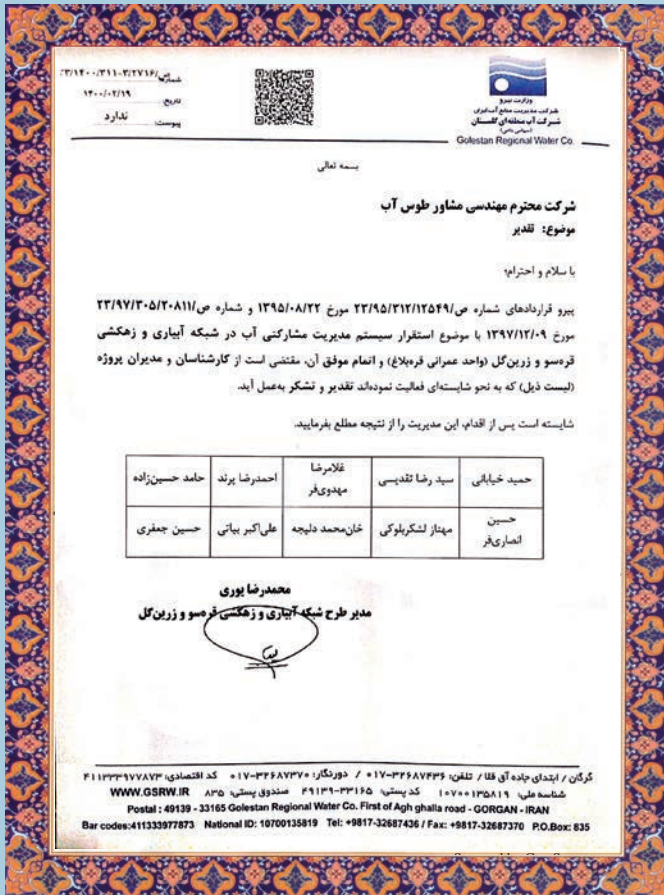 شماره: ص/۲۷۱۶/۳-۳۱۱/۱۴۰۰/۳
تاریخ: ۱۴۰۰/۰۲/۱۹
پیوست: ندارد
وزارت نیرو
شرکت مدیریت منابع آب ایران
شرکت آب منطقه‌ای گلستان
(سهامی خاص)
Golestan Regional Water Co.
بسمه تعالی
شرکت محترم مهندسی مشاور طوس آب
موضوع: تقدیر
با سلام و احترام؛
پیرو قراردادهای شماره ص/۲۳/۹۵/۳۱۲/۱۲۵۴۹ مورخ ۱۳۹۵/۰۸/۲۲ و شماره ص/۲۳/۹۷/۳۰۵/۲۰۸۱۱
مورخ ۱۳۹۷/۱۲/۰۹ با موضوع استقرار سیستم مدیریت مشارکتی آب در شبکه آبیاری و زهکشی
قره‌سو و زرین‌گل (واحد عمرانی قره‌بلاغ) و اتمام موفق آن، مقتضی است از کارشناسان و مدیران پروژه
(لیست ذیل) که به نحو شایسته‌ای فعالیت نموده‌اند تقدیر و تشکر به‌عمل آید.
شایسته است پس از اقدام، این مدیریت را از نتیجه مطلع بفرمایید.
حمید خیابانی سید رضا تقدیسی غلامرضا مهدوی‌فر احمدرضا پرند حامد حسین‌زاده
حسین انصاری‌فر مهناز لشکربلوکی خان‌محمد دلیجه علی‌اکبر بیاتی حسین جعفری
محمدرضا پوری
مدیر طرح شبکه آبیاری و زهکشی قره‌سو و زرین‌گل
گرگان / ابتدای جاده آق قلا / تلفن: ۳۲۶۸۷۴۳۶-۰۱۷ / دورنگار: ۳۲۶۸۷۳۷۰-۰۱۷ کد اقتصادی: ۴۱۱۳۳۳۹۷۷۸۷۳
شناسه ملی: ۱۰۷۰۰۱۳۵۸۱۹ کد پستی: ۳۳۱۶۵-۴۹۱۳۹ صندوق پستی: ۸۳۵ WWW.GSRW.IR
Postal : 49139 - 33165 Golestan Regional Water Co. First of Agh ghalla road - GORGAN - IRAN
Bar codes:411333977873 National ID: 10700135819 Tel: +9817-32687436 / Fax: +9817-32687370 P.O.Box: 835